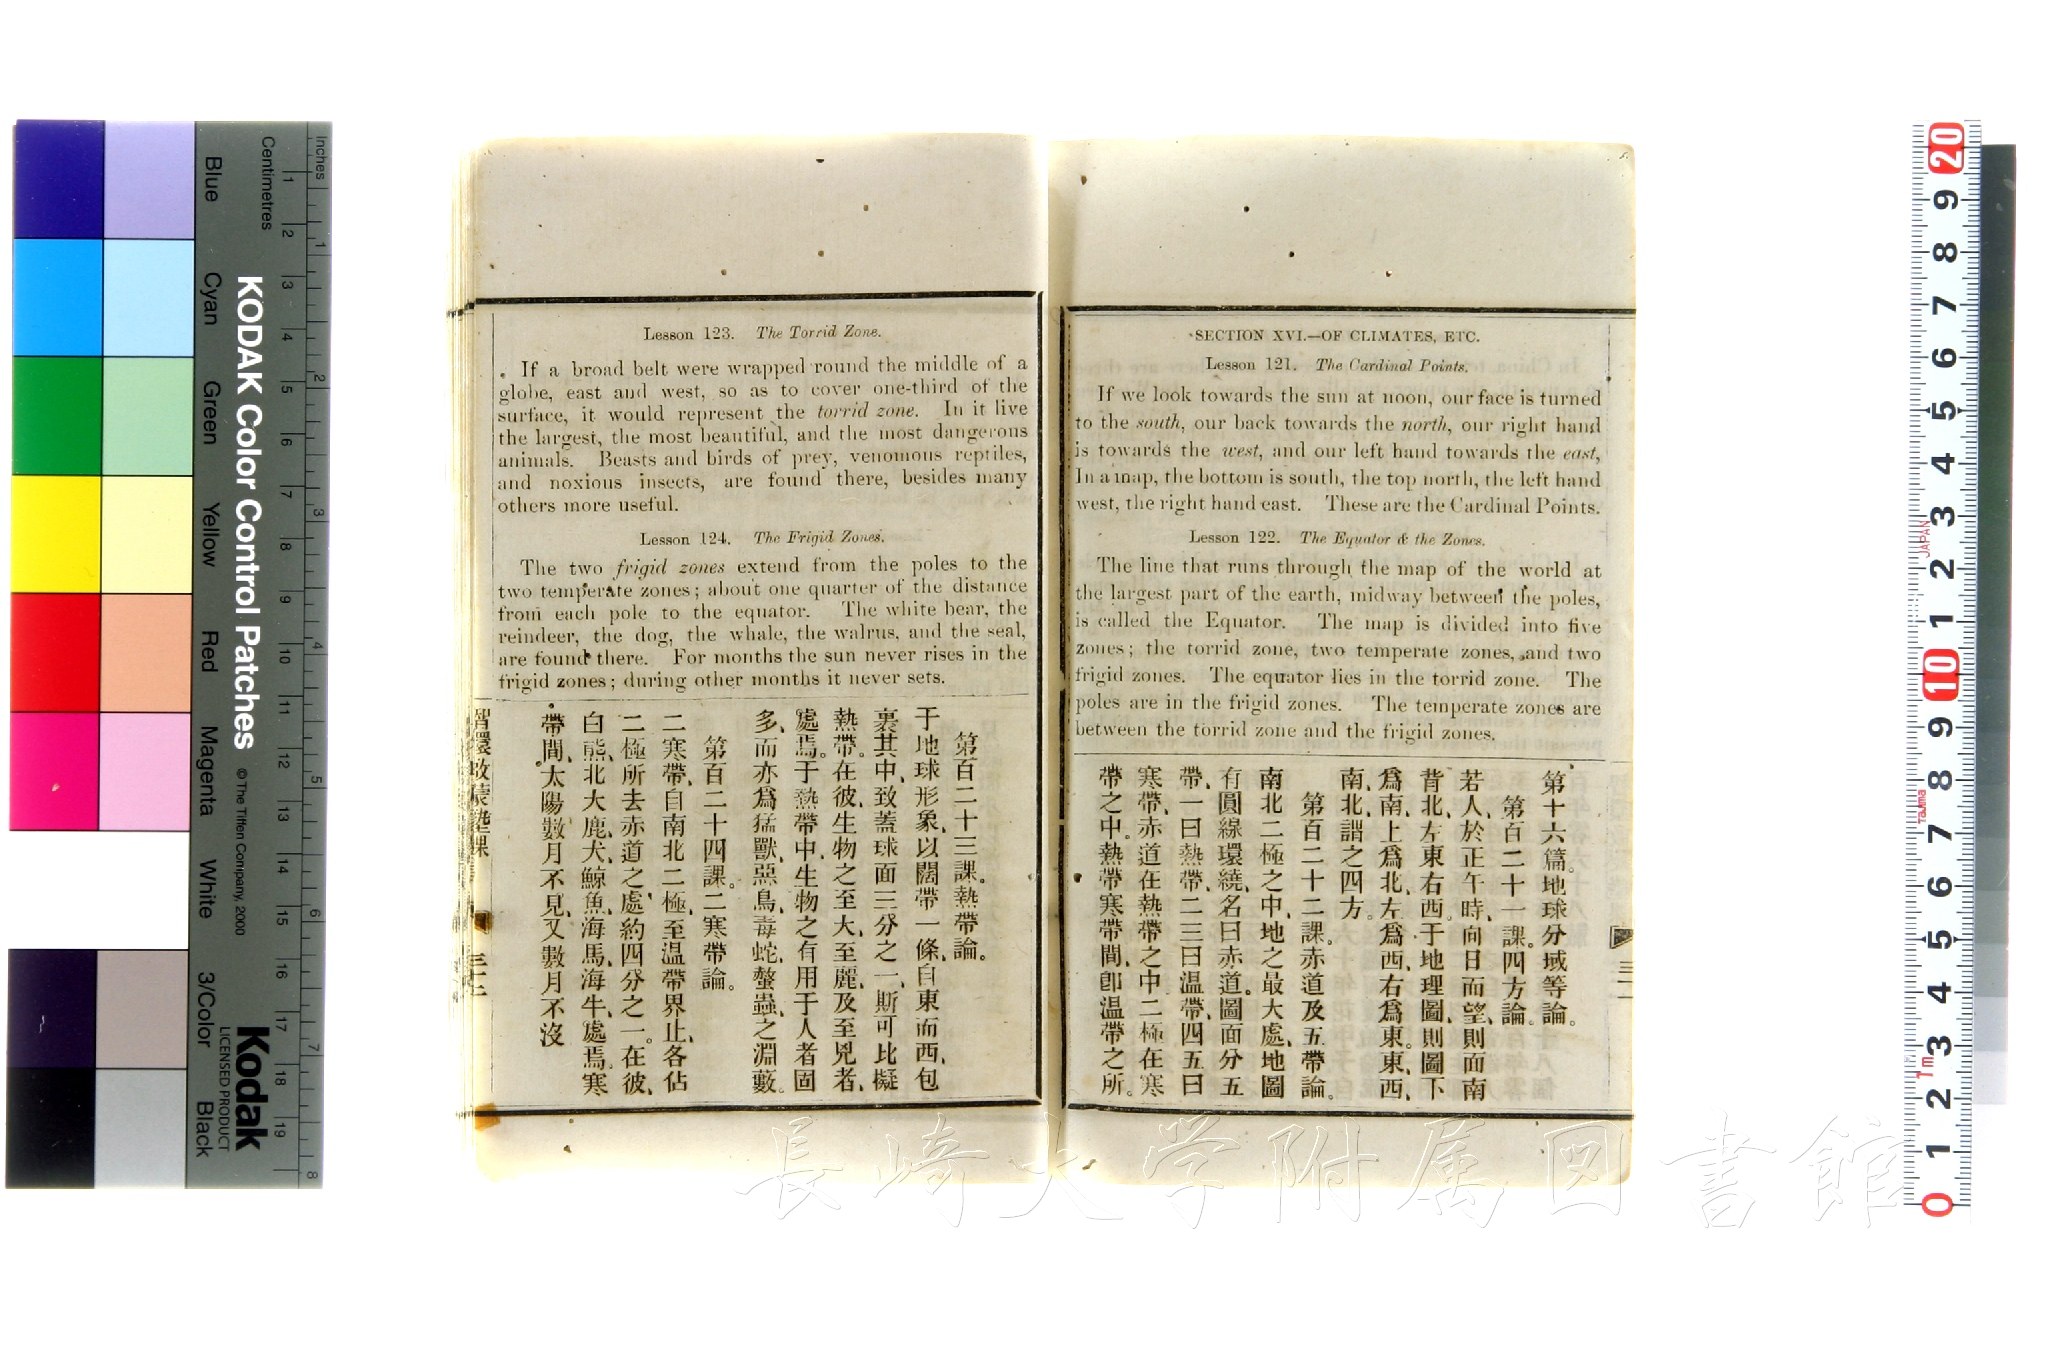 SECTION XVI.—OF CLIMATES, ETC.
Lesson 121. The Cardinal Points.
If we look towards the sun at noon, our face is turned
to the south, our back towards the north, our right hand
is towards the west, and our left hand towards the east,
In a map, the bottom is south, the top north, the left hand
west, the right hand east. These are the Cardinal Points.
Lesson 122. The Equator & the Zones.
The line that runs through the map of the world at
the largest part of the earth, midway between the poles,
is called the Equator. The map is divided into five
zones; the torrid zone, two temperate zones, and two
frigid zones. The equator lies in the torrid zone. The
poles are in the frigid zones. The temperate zones are
between the torrid zone and the frigid zones.
第十六篇。地球分域等論。
第百二十一課。四方論。
若人、於正午時、向日而望、則面南
背北、左東右西。于地理圖、則圖下
爲南、上爲北、左爲西、右爲東。東、西、
南、北、謂之四方。
第百二十二課。赤道及五帶論。
南北二極之中、地之最大處、地圖
有圓線環繞、名曰赤道。圖面分五
帶、一曰熱帶、二三曰温帶、四五曰
寒帶、赤道在熱帶之中、二極在寒
帶之中。熱帶寒帶間、卽温帶之所。
三二
Lesson 123. The Torrid Zone.
If a broad belt were wrapped round the middle of a
globe, east and west, so as to cover one-third of the
surface, it would represent the torrid zone. In it live
the largest, the most beautiful, and the most dangerous
animals. Beasts and birds of prey, venomous reptiles,
and noxious insects, are found there, besides many
others more useful.
Lesson 124. The Frigid Zones.
The two frigid zones extend from the poles to the
two temperate zones; about one quarter of the distance
from each pole to the equator. The white bear, the
reindeer, the dog, the whale, the walrus, and the seal,
are found there. For months the sun never rises in the
frigid zones; during other months it never sets.
第百二十三課。熱帶論。
于地球形象、以闊帶一條、自東而西、包
裹其中、致蓋球面三分之一、斯可比擬
熱帶。在彼、生物之至大、至麗、及至兇者、
處焉。于熱帶中、生物之有用于人者固
多、而亦爲猛獸、惡鳥、毒蛇、螫蟲、之淵藪。
第百二十四課。二寒帶論。
二寒帶、自南北二極、至温帶界止、各佔
二極所去赤道之處、約四分之一。在彼、
白熊、北大鹿、犬、鯨魚、海馬、海牛、處焉。寒
帶間、太陽數月不見、又數月不沒
智環啟蒙塾課
Inches
Centimetres
1 2 3 4 5 6 7 8
1 2 3 4 5 6 7 8 9 10 11 12 13 14 15 16 17 18 19
KODAK Color Control Patches
© The Tiffen Company, 2000
Kodak
LICENSED PRODUCT
Blue
Cyan
Green
Yellow
Red
Magenta
White
3/Color
Black
20 9 8 7 6 5 4 3 2 1 10 9 8 7 6 5 4 3 2 1 0
JAPAN
Tajima
1m
長崎大学附属図書館